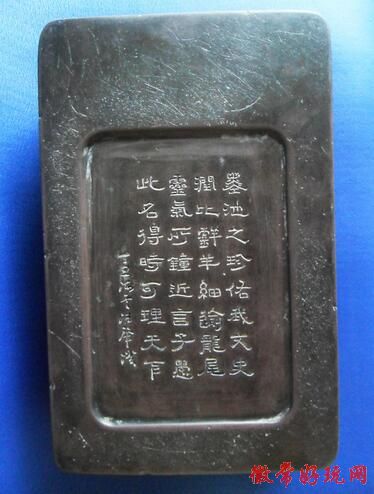 墨池之珍佑我文史
潤比鮮羊細逾龍尾
靈氣所鐘近言子
此名得時可理天下
丁丑
常好玩网